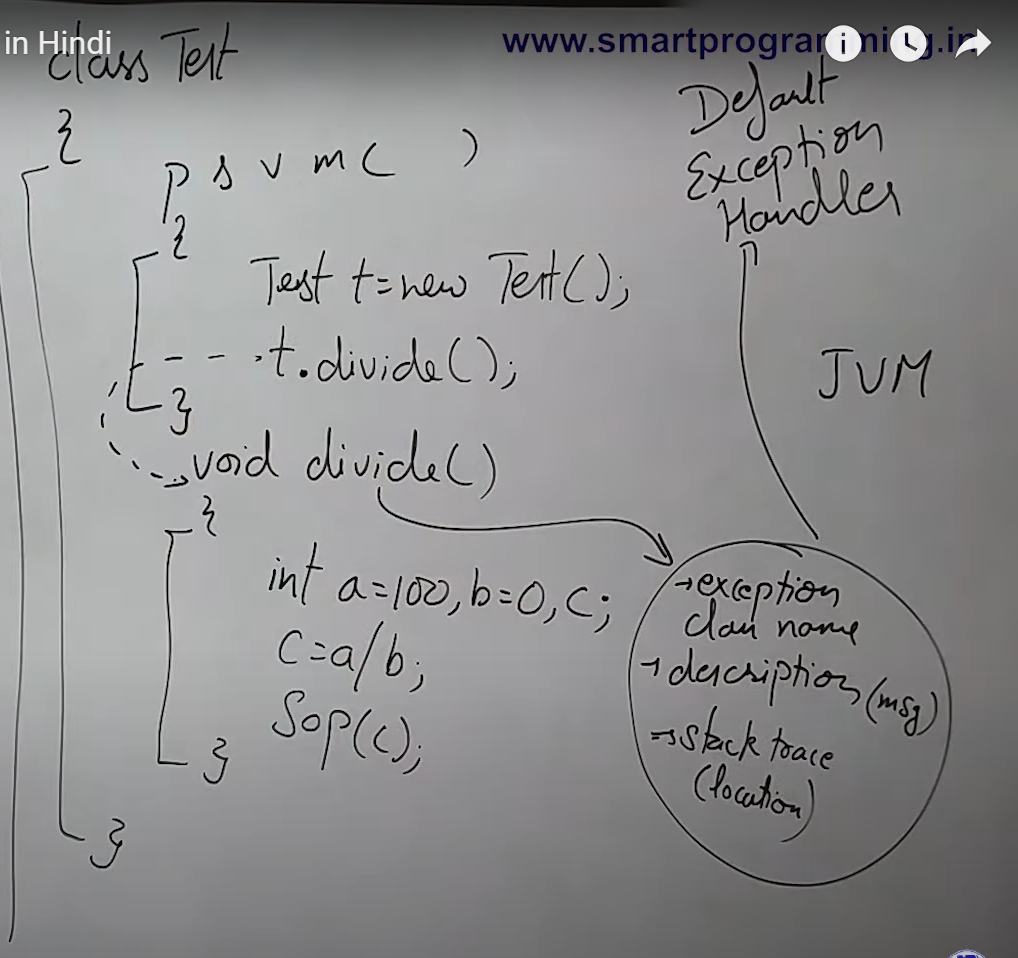 in Hindi
www.smartprogramming.in
class Test
{
p s v m ( )
{
Test t=new Test();
t.divide();
}
void divide()
{
int a=100,b=0,c;
c=a/b;
Sop(c);
}
}
Default
Exception
Handler
JVM
→exception
class name
→description(msg)
→stack trace
(location)